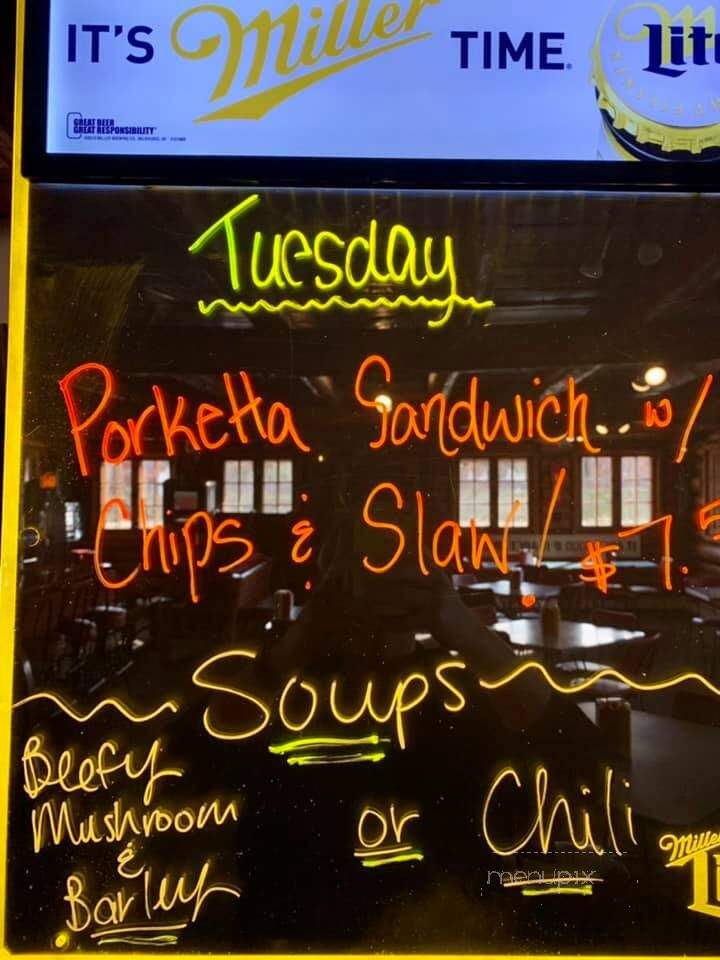 IT'S Miller TIME. Lite
GREAT BEER
GREAT RESPONSIBILITY
Tuesday
Porketta Sandwich w/
Chips & Slaw! $7.5
Soups
Beefy
Mushroom
&
Barley
or Chili
Miller
Li
menupix